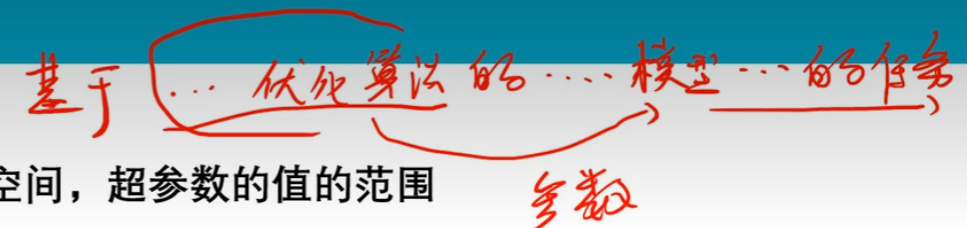 基于 … 优化算法的 …. 模型 … 的任务
空间，超参数的值的范围
参数